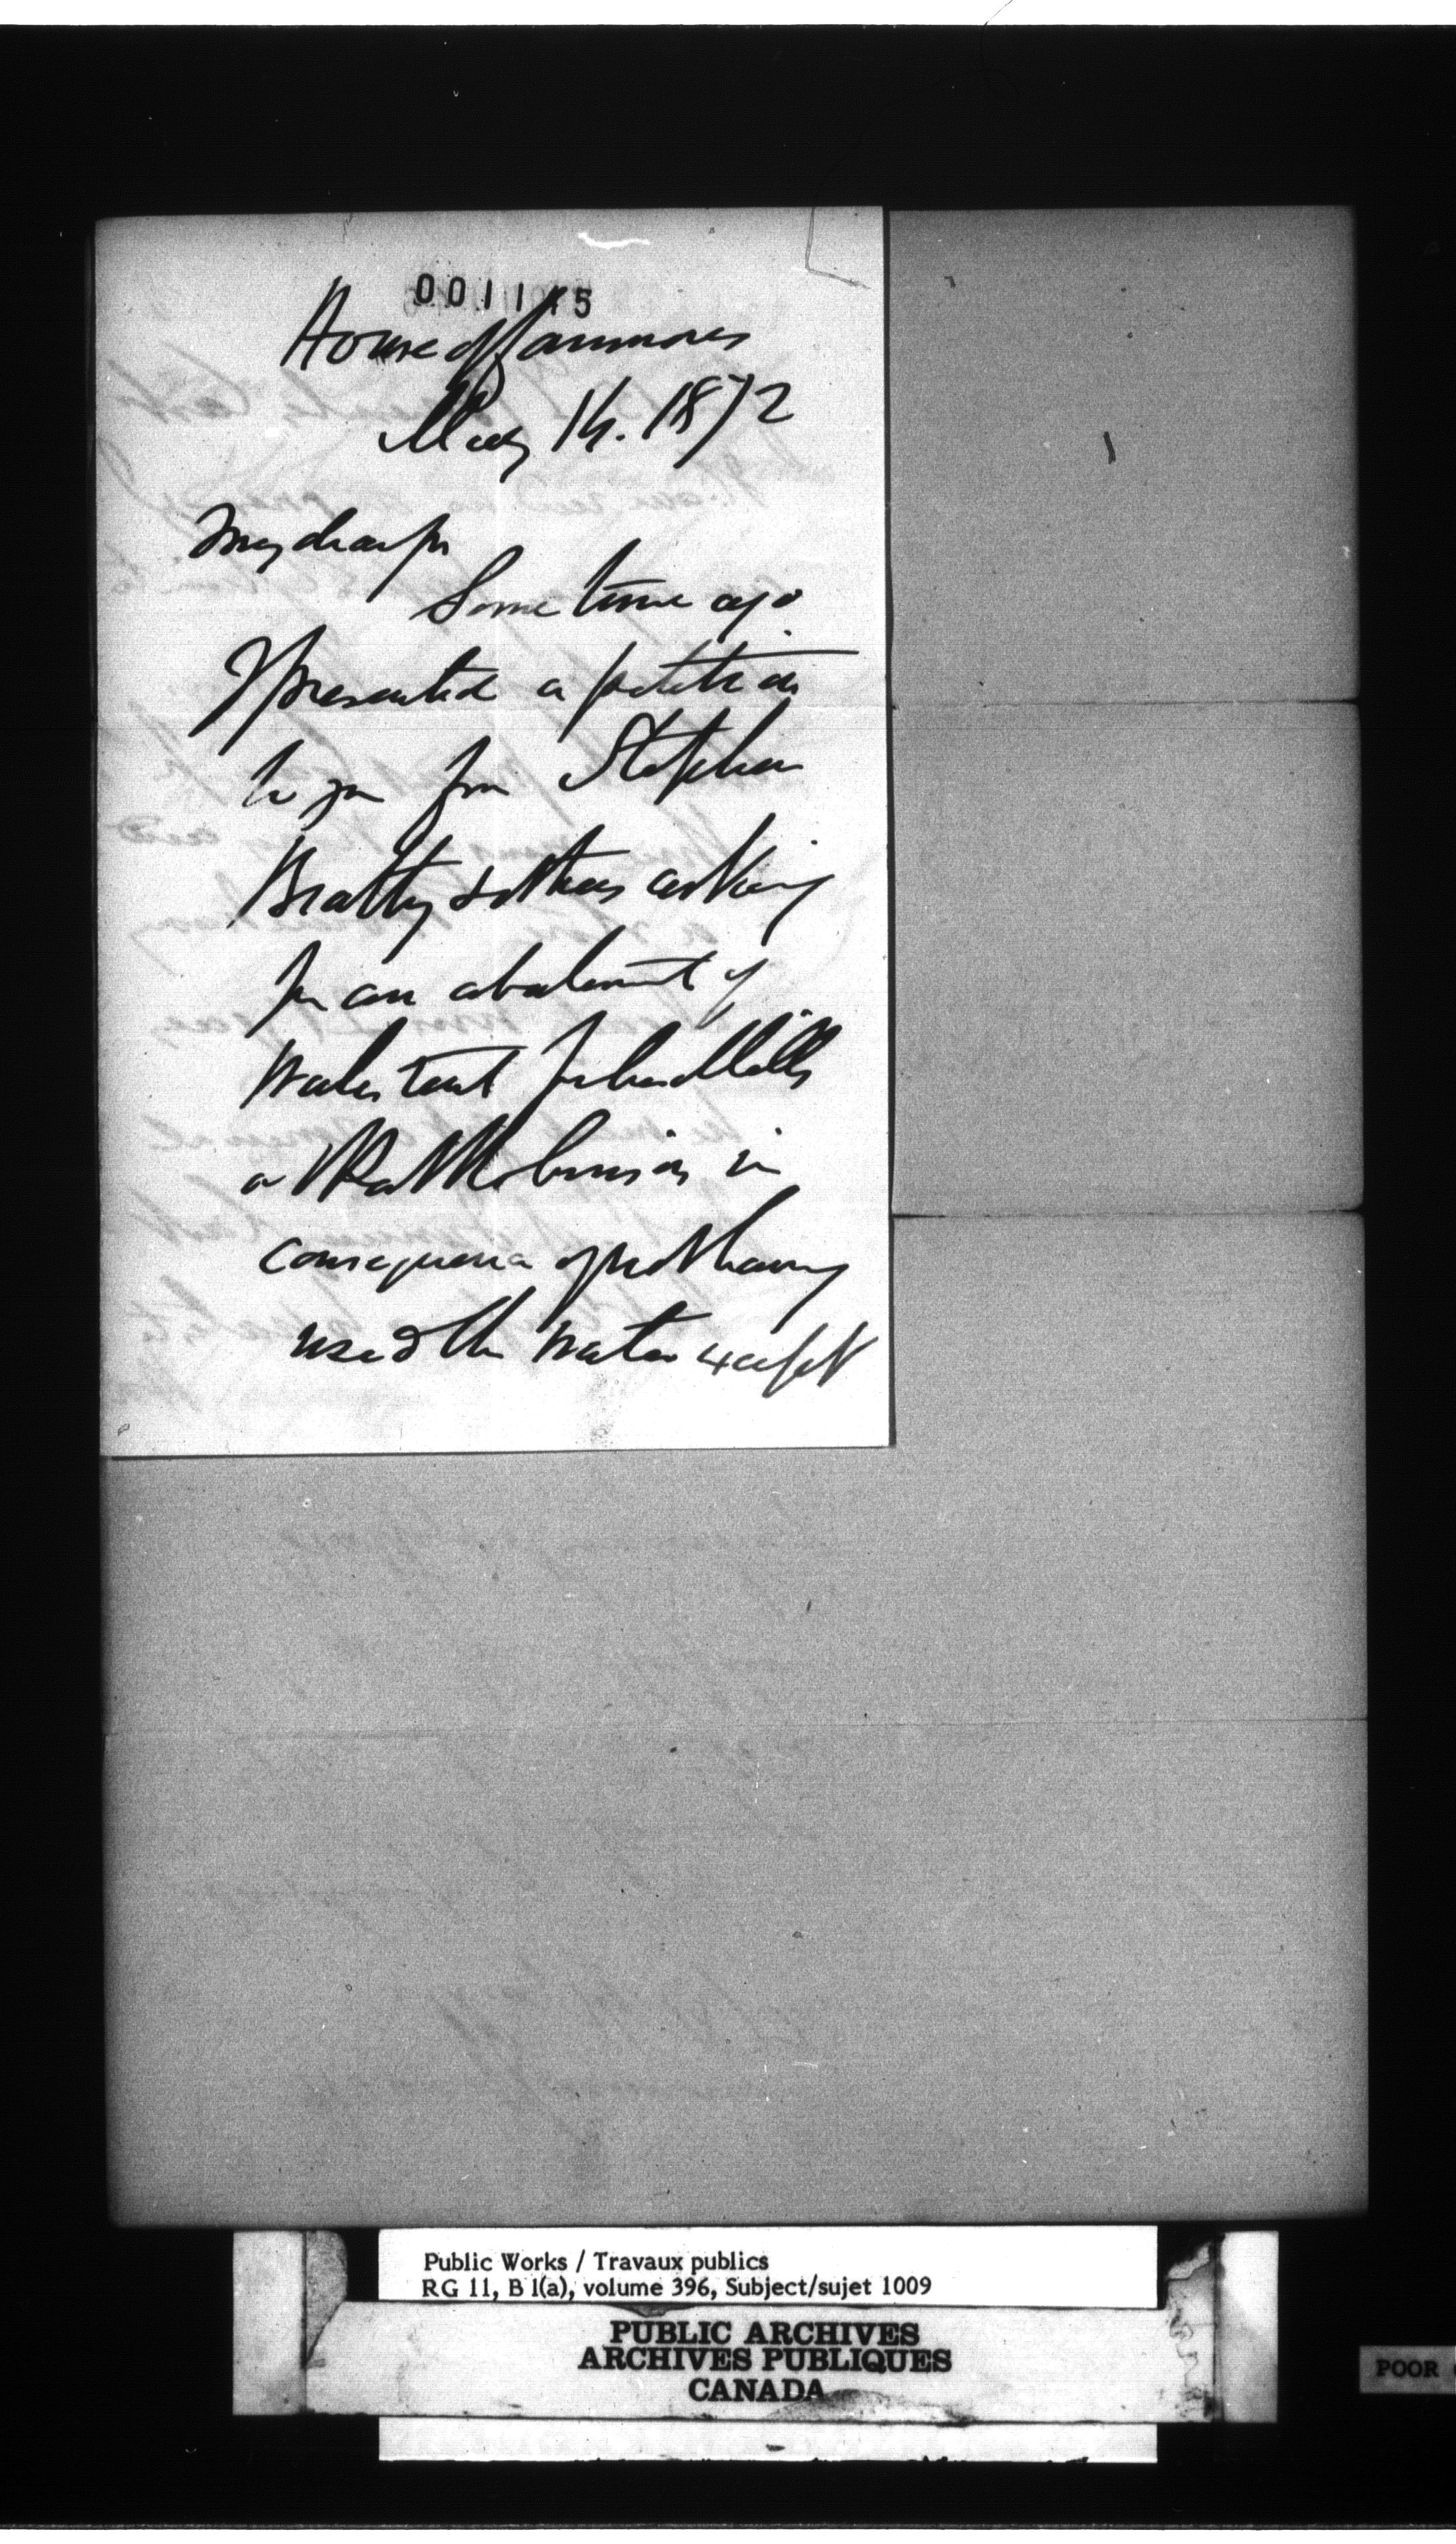 001115
House of Commons
May 14. 1872
My dear Sir
Some time ago
I presented a petition
to you from Stephen
Beatty & others asking
for an abatement of
Water rent for
in
consequence of not having
used the water except
Public Works / Travaux publics
RG 11, B 1(a), volume 396, Subject/sujet 1009
PUBLIC ARCHIVES
ARCHIVES PUBLIQUES
CANADA
POOR